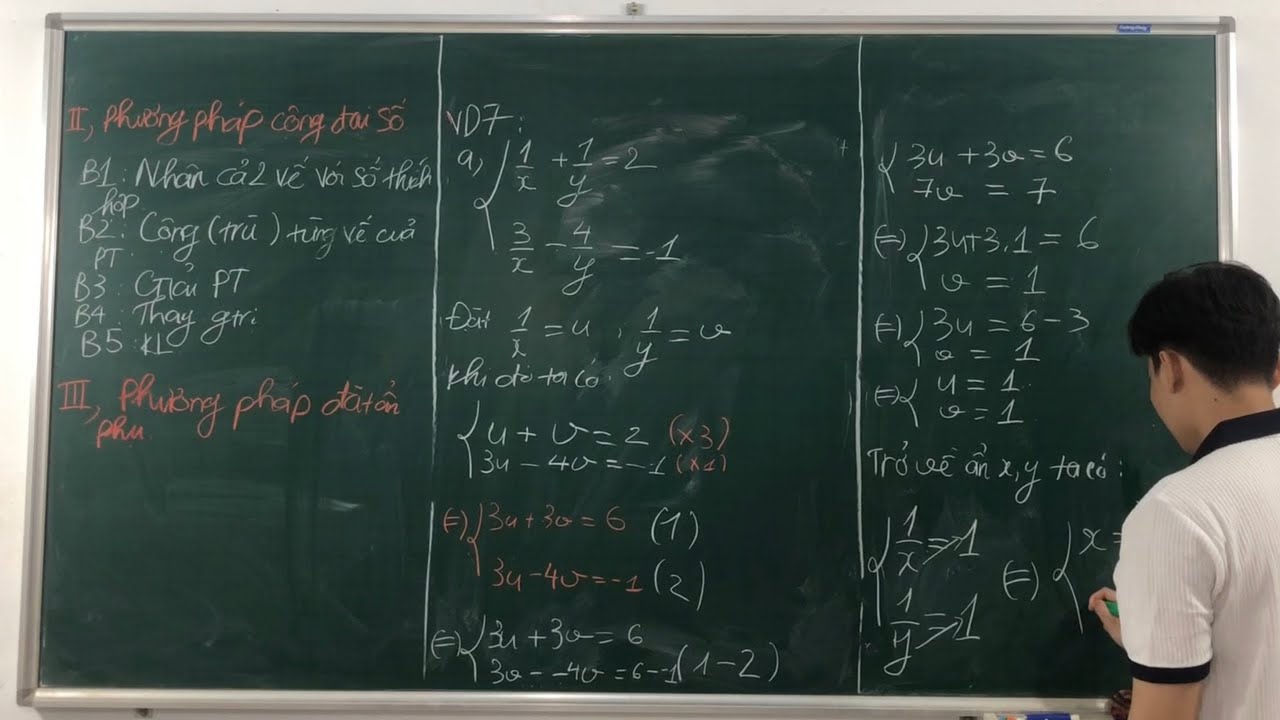 II, phương pháp công đai số
B1: Nhân cả 2 vế với số thích
hợp
B2: Công (trừ) từng vế của
PT
B3: Giải PT
B4: Thay gtri
B5: KL
III, phương pháp đặt ẩn
phụ.
VD7:
a, { 1/x + 1/y = 2
3/x - 4/y = -1
Đặt 1/x = u, 1/y = v
Khi đó ta có.
{ u + v = 2 (x3)
3u - 4v = -1 (x1)
(=) { 3u + 3v = 6 (1)
3u - 4v = -1 (2)
(=) { 3u + 3v = 6
3v - -4v = 6 - -1 (1-2)
{ 3u + 3v = 6
7v = 7
(=) { 3u + 3.1 = 6
v = 1
(=) { 3u = 6 - 3
v = 1
(=) { u = 1.
v = 1.
Trở về ẩn x, y ta có:
{ 1/x = 1
1/y = 1
(=) { x =